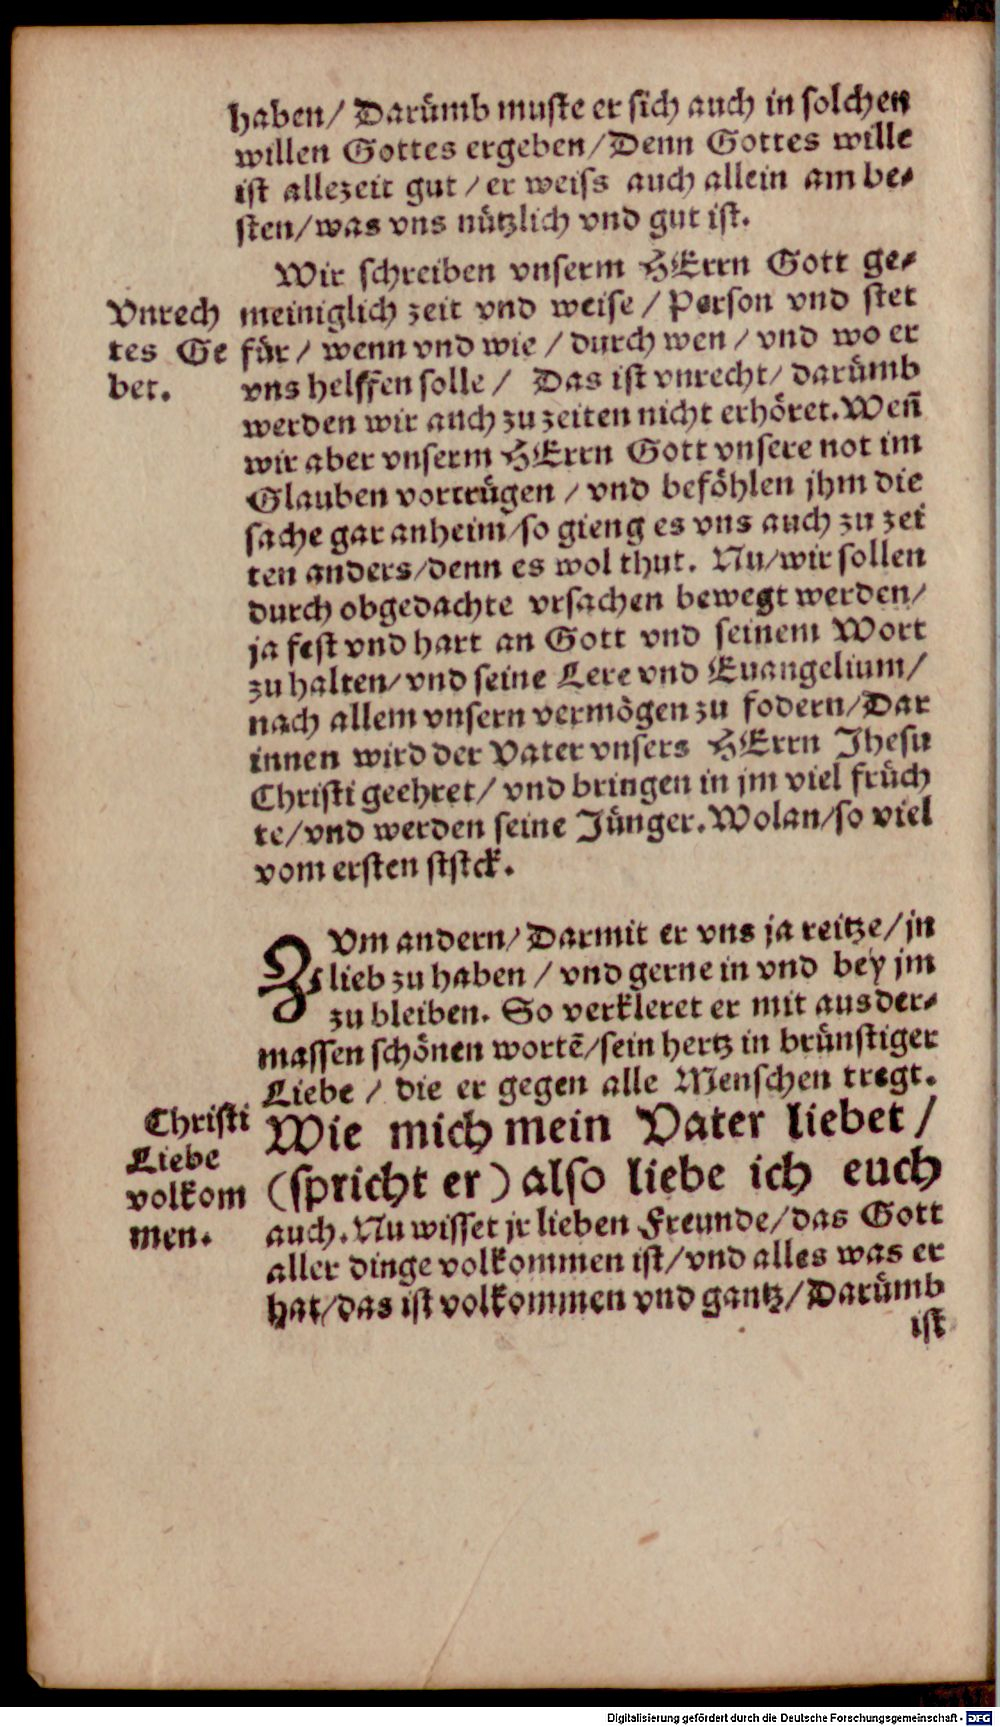 haben/ Darümb muste er sich auch in solchen
willen Gottes ergeben/Denn Gottes wille
ist allezeit gut / er weiss auch allein am be-
sten/was vns nützlich vnd gut ist.
Wir schreiben vnserm HErrn Gott ge-
meiniglich zeit vnd weise / Person vnd stet
für / wenn vnd wie / durch wen / vnd wo er
vns helffen solle / Das ist vnrecht/ darümb
werden wir auch zu zeiten nicht erhöret. Weñ
wir aber vnserm HErrn Gott vnsere not im
Glauben vortrügen / vnd beföhlen jhm die
sache gar anheim/so gieng es vns auch zu zei
ten anders/denn es wol thut. Nu/wir sollen
durch obgedachte vrsachen bewegt werden/
ja fest vnd hart an Gott vnd seinem Wort
zu halten/vnd seine Lere vnd Euangelium/
nach allem vnsern vermögen zu fodern/Dar
innen wird der Vater vnsers HErrn Jhesu
Christi geehret/ vnd bringen in jm viel früch
te/vnd werden seine Jünger. Wolan/so viel
vom ersten ststck.
Vnrech
tes Ge
bet.
ZVm andern/ Darmit er vns ja reitze/jn
lieb zu haben / vnd gerne in vnd bey jm
zu bleiben. So verkleret er mit aus der-
massen schönen wortẽ/sein hertz in brünstiger
Liebe / die er gegen alle Menschen tregt.
Wie mich mein Vater liebet /
(spricht er) also liebe ich euch
auch. Nu wisset jr lieben Freunde/das Gott
aller dinge volkommen ist/vnd alles was er
hat/das ist volkommen vnd gantz/Darümb
ist
Christi
Liebe
volkom
men.
Digitalisierung gefördert durch die Deutsche Forschungsgemeinschaft - DFG